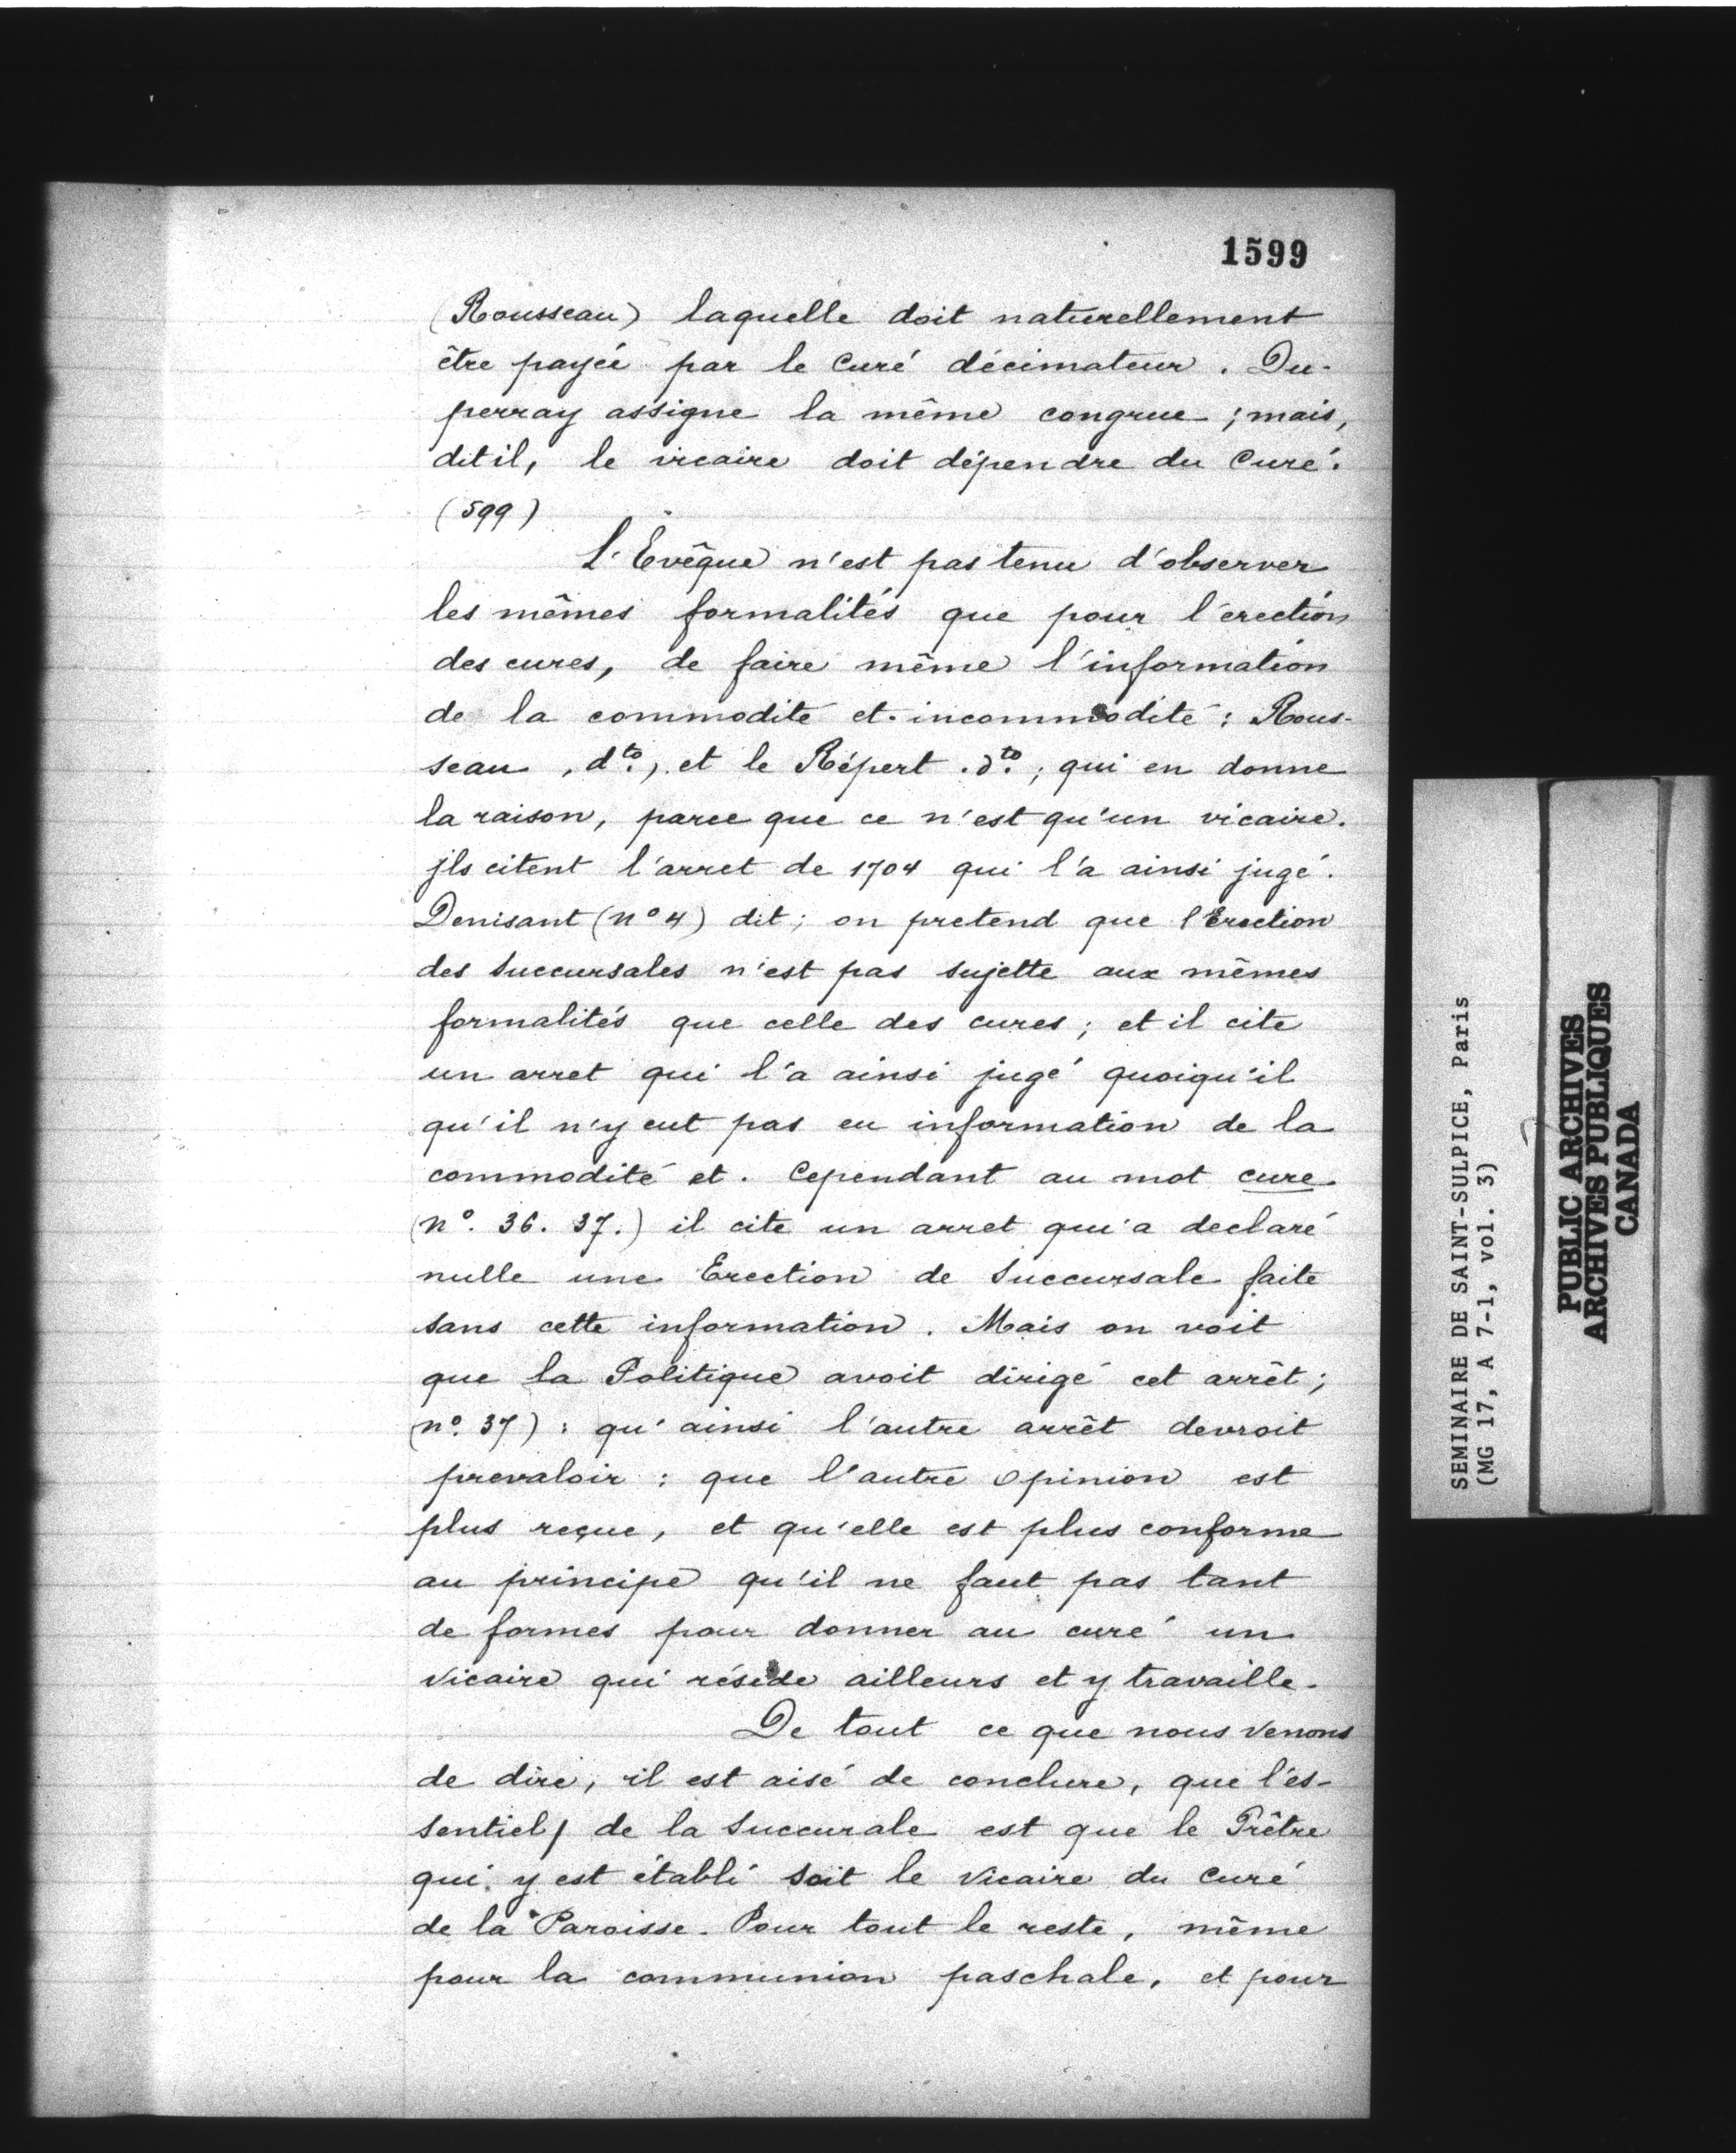 1599
(Rousseau) laquelle doit naturellement
être payée par le Curé décimateur. Du-
perray assigne la même congrue ; mais,
dit il, le vicaire doit dépendre du Curé.
(599)
L'Evêque n'est pas tenu d'observer
les mêmes formalités que pour l'erection
des cures, de faire même l'information
de la commodité et incommodité : Rous-
seau, dto., et le Répert. dto. ; qui en donne
la raison, parce que ce n'est qu'un vicaire.
jls citent l'arret de 1704 qui l'a ainsi jugé.
Denisant (no 4) dit ; on pretend que l'Erection
des Succursales n'est pas sujette aux mêmes
formalités que celle des cures ; et il cite
un arret qui l'a ainsi jugé quoiqu'il
qu'il n'y eut pas eu information de la
commodité et. Cependant au mot cure
(no. 36. 37.) il cite un arret qui a declaré
nulle une Erection de Succursale faite
sans cette information. Mais on voit
que la Politique avoit dirigé cet arrêt ;
(no. 37) : qu'ainsi l'autre arrêt devroit
prevaloir : que l'autre opinion est
plus reçue, et qu'elle est plus conforme
au principe qu'il ne faut pas tant
de formes pour donner au curé un
vicaire qui réside ailleurs et y travaille.
De tout ce que nous venons
de dire, il est aisé de conclure, que l'es-
sentiel de la Succurale est que le Prêtre
qui y est établi soit le vicaire du Curé
de la Paroisse. Pour tout le reste, même
pour la communion paschale, et pour
SEMINAIRE DE SAINT-SULPICE, Paris
(MG 17, A 7-1, vol. 3)
PUBLIC ARCHIVES
ARCHIVES PUBLIQUES
CANADA